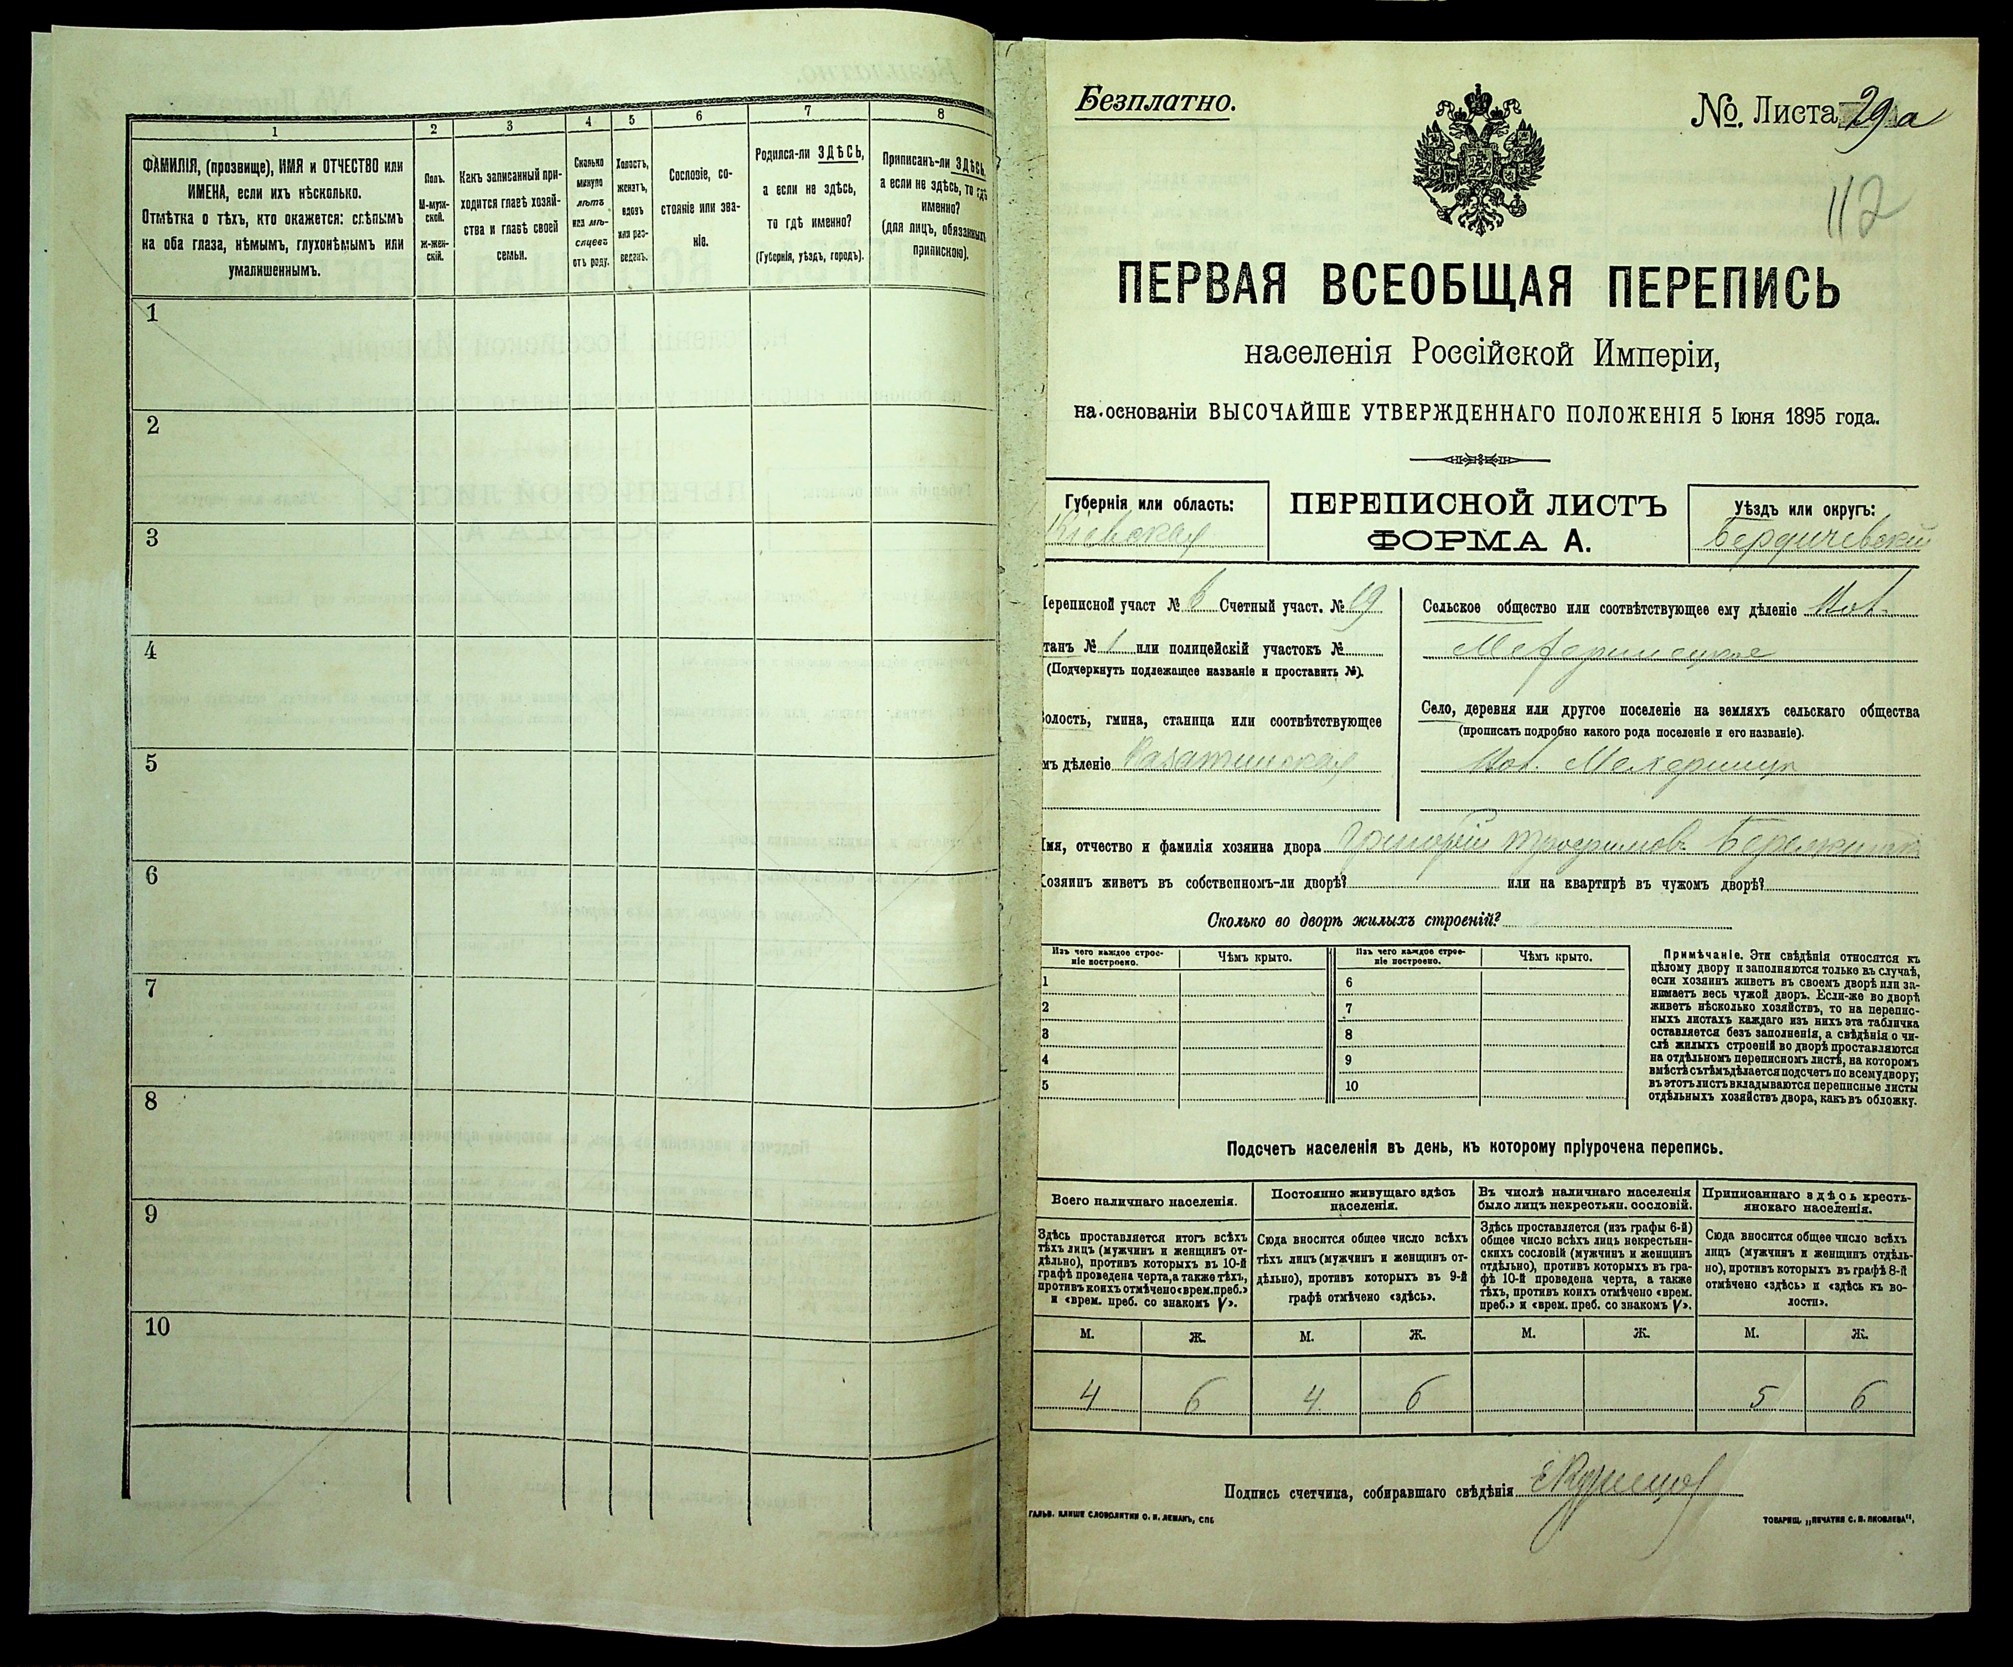 1
2
3
4
5
6
7
8
ФАМИЛІЯ, (прозвище), ИМЯ и ОТЧЕСТВО или
ИМЕНА, если ихъ нѣсколько.
Отмѣтка о тѣхъ, кто окажется: слѣпымъ
на оба глаза, нѣмымъ, глухонѣмымъ или
умалишеннымъ.
Полъ.
М-муж-
ской.
Ж-жен-
скій.
Какъ записанный при-
ходится главѣ хозяй-
ства и главѣ своей
семьи.
Сколько
минуло
лѣтъ
или мѣ-
сяцевъ
отъ роду.
Холостъ,
женатъ,
вдовъ
или раз-
веденъ.
Сословіе, со-
стояніе или зва-
ніе.
Родился-ли ЗДѢСЬ,
а если не здѣсь,
то гдѣ именно?
(Губернія, уѣздъ, городъ).
Приписанъ-ли ЗДѢСЬ,
а если не здѣсь, то гдѣ
именно?
(для лицъ, обязанныхъ
припискою).
1
2
3
4
5
6
7
8
9
10
Безплатно.
№. Листа 29а
112
ПЕРВАЯ ВСЕОБЩАЯ ПЕРЕПИСЬ
населенія Россійской Имперіи,
на основаніи ВЫСОЧАЙШЕ УТВЕРЖДЕННАГО ПОЛОЖЕНІЯ 5 Іюня 1895 года.
Губернія или область:
Кіевская
ПЕРЕПИСНОЙ ЛИСТЪ
ФОРМА А.
Уѣздъ или округъ:
Бердичевскій
Переписной участ № 6 Счетный участ. № 19
танъ № 1 или полицейскій участокъ №
(Подчеркнуть подлежащее названіе и проставить №).
волость, гмина, станица или соотвѣтствующее
мъ дѣленіе Казатинская
Сельское общество или соотвѣтствующее ему дѣленіе
Село, деревня или другое поселеніе на земляхъ сельскаго общества
(прописать подробно какого рода поселеніе и его названіе).
Имя, отчество и фамилія хозяина двора Григорій Трофимовъ
Хозяинъ живетъ въ собственномъ-ли дворѣ? или на квартирѣ въ чужомъ дворѣ?
Сколько во дворѣ жилыхъ строеній?
Изъ чего каждое строе-
ніе построено.
Чѣмъ крыто.
Изъ чего каждое строе-
ніе построено.
Чѣмъ крыто.
1
2
3
4
5
6
7
8
9
10
Примѣчаніе. Эти свѣдѣнія относятся къ
цѣлому двору и заполняются только въ случаѣ,
если хозяинъ живетъ въ своемъ дворѣ или за-
нимаетъ весь чужой дворъ. Если-же во дворѣ
живетъ нѣсколько хозяйствъ, то на перепис-
ныхъ листахъ каждаго изъ нихъ эта табличка
оставляется безъ заполненія, а свѣдѣнія о чи-
слѣ жилыхъ строеній во дворѣ проставляются
на отдѣльномъ переписномъ листѣ, на которомъ
вмѣстѣ съ тѣмъ дѣлается подсчетъ по всему двору;
въ этотъ листъ вкладываются переписные листы
отдѣльныхъ хозяйствъ двора, какъ въ обложку.
Подсчетъ населенія въ день, къ которому пріурочена перепись.
Всего наличнаго населенія.
Постоянно живущаго здѣсь
населенія.
Въ числѣ наличнаго населенія
было лицъ некрестьян. сословій.
Приписаннаго здѣсь кресть-
янскаго населенія.
Здѣсь проставляется итогъ всѣхъ
тѣхъ лицъ (мужчинъ и женщинъ от-
дѣльно), противъ которыхъ въ 10-й
графѣ проведена черта, а также тѣхъ,
противъ коихъ отмѣчено «врем. преб.»
и «врем. преб. со знакомъ V».
Сюда вносится общее число всѣхъ
тѣхъ лицъ (мужчинъ и женщинъ от-
дѣльно), противъ которыхъ въ 9-й
графѣ отмѣчено «здѣсь».
Здѣсь проставляется (изъ графы 6-й)
общее число всѣхъ лицъ некрестьян-
скихъ сословій (мужчинъ и женщинъ
отдѣльно), противъ которыхъ въ гра-
фѣ 10-й проведена черта, а также
тѣхъ, противъ коихъ отмѣчено «врем.
преб.» и «врем. преб. со знакомъ V».
Сюда вносится общее число всѣхъ
лицъ (мужчинъ и женщинъ отдѣль-
но), противъ которыхъ въ графѣ 8-й
отмѣчено «здѣсь» и «здѣсь къ во-
лости».
М. Ж. М. Ж. М. Ж. М. Ж.
4 6 4 6 5 6
Подпись счетчика, собиравшаго свѣдѣнія
ГАЛЬВ. КЛИШЕ СЛОВОЛИТНИ О. И. ЛЕМАНЪ, СПБ
ТОВАРИЩ. „ПЕЧАТНЯ С. П. ЯКОВЛЕВА“.